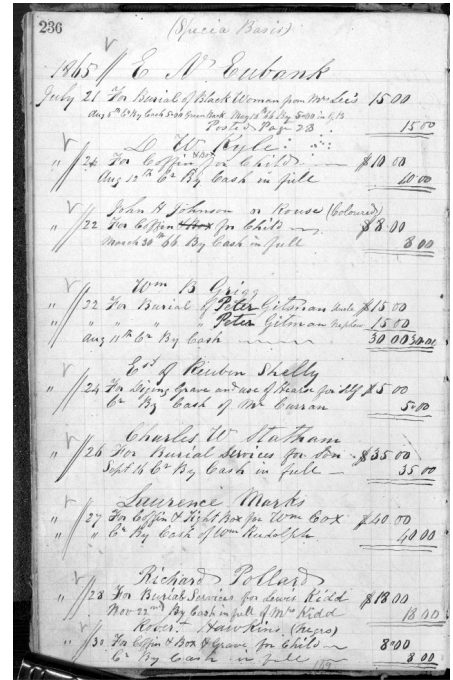 236
(Specia Basis)
1865 E N Eubank
July 21 For Burial of Black Woman from Mrs Lee's 15.00
Aug 5th Cr By Cash 5.00 Green Back May 15th 66 By 5.00 in
Posted Page 23 15.00
D W Kyle
" 24 For Coffin & Box for Child $10.00
Aug 12th Cr By Cash in full 10.00
John H Johnson or Rouse (Coloured)
" 22 For Coffin & Box for Child $8.00
March 30th 66 By Cash in full 8.00
Wm B Grigg
" 22 For Burial of Peter Gitman Uncle $15.00
" " " " Peter Gitman Nephew 15.00
Aug 11th Cr By Cash 30.00 30.00
Est of Reuben Shelly
" 24 For Diging Grave and use of Hearse for self $5.00
Cr By Cash of Mr Curran 5.00
Charles W Statham
" 26 For Burial Services for Son $35.00
Sept 16 Cr By Cash in full 35.00
Laurence Marks
" 27 For Coffin & Tight Box for Wm Cox $40.00
" " Cr By Cash of Wm Rudolph 40.00
Richard Pollard
" 28 For Burial Services for Lewis Kidd $18.00
Nov 22nd By Cash in full of Mrs Kidd 18.00
Robert Hawkins (Negro)
" 30 For Coffin & Box & Grave for Child 8.00
Cr By Cash in full 8.00